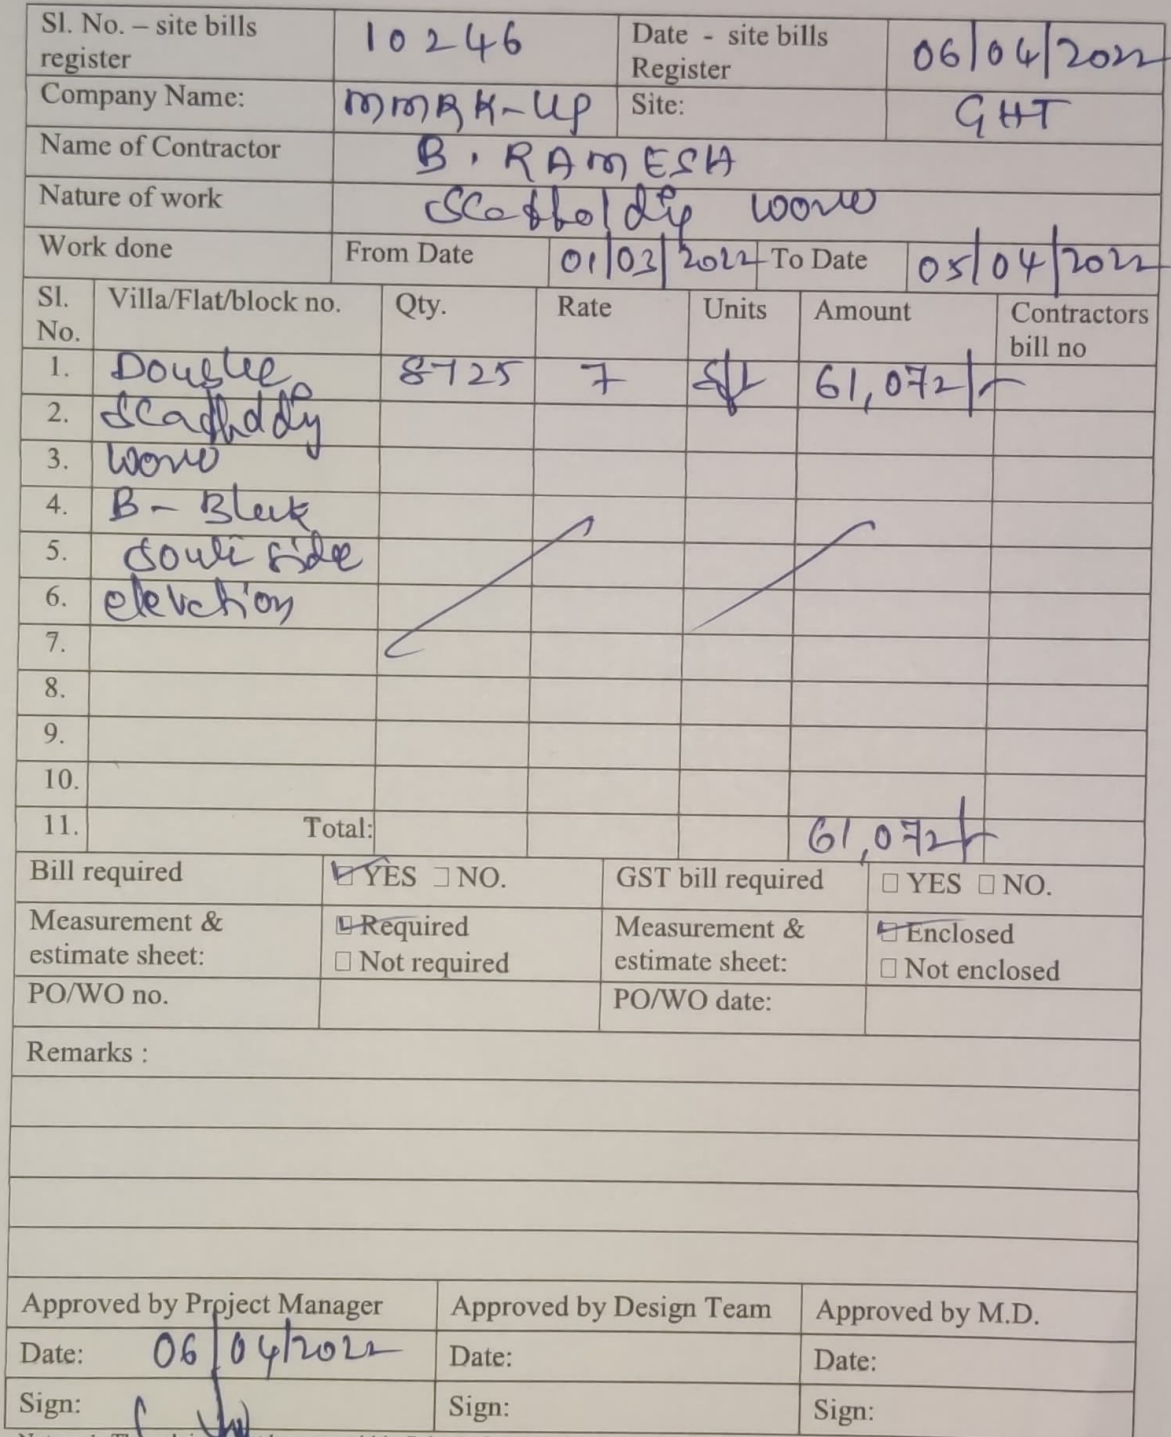 Sl. No. – site bills register 10246 Date - site bills Register 06/04/2022
Company Name: MMRK-UP Site: GHT
Name of Contractor B. RAMESH
Nature of work Scaffolding work
Work done From Date 01/03/2022 To Date 05/04/2022
Sl. No. Villa/Flat/block no. Qty. Rate Units Amount Contractors bill no
1. Double 8725 7 sft 61,072/-
2. Scaffolding
3. work
4. B - Block
5. South side
6. elevation
7.
8.
9.
10.
11. Total: 61,072/-
Bill required YES NO. GST bill required YES NO.
Measurement & estimate sheet: Required Not required Measurement & estimate sheet: Enclosed Not enclosed
PO/WO no. PO/WO date:
Remarks :
Approved by Project Manager Approved by Design Team Approved by M.D.
Date: 06/04/2022 Date: Date:
Sign: Sign: Sign: